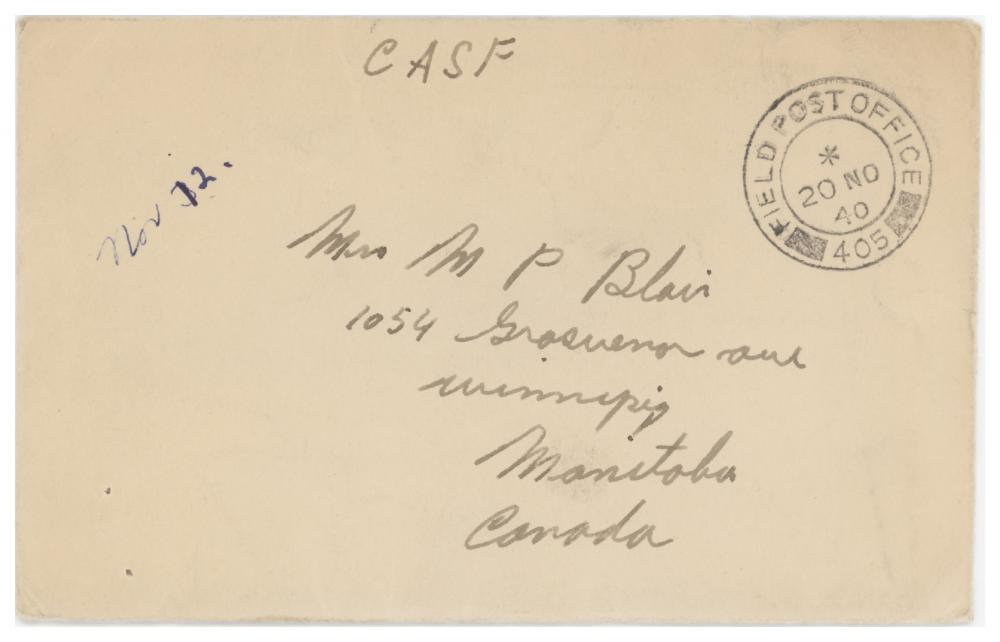 CASF
FIELD POST OFFICE
*
20 NO
40
405
Nov 12.
Mrs M P Blair
1054 Grosvenor ave
Winnipig
Manitoba
Canada